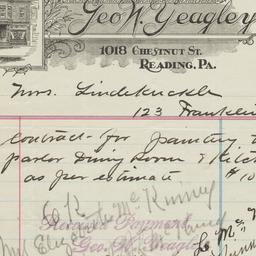 Geo. W. Yeagley
1018 CHESTNUT ST.
READING, PA.
Mrs. Lindekuckle
123 Franklin
Contract for painting
parlor Dining Room & Kitch
as per estimate $10
O.K.
McKinney
Received Payment
Geo. W. Yeagley